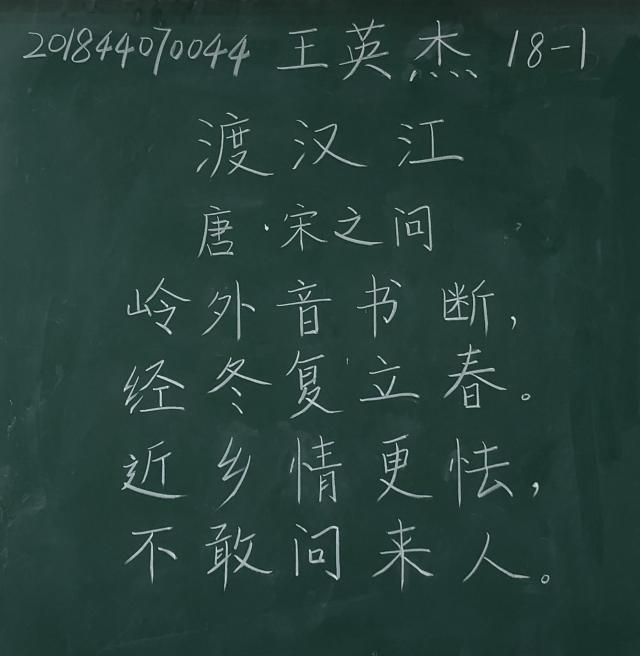 201844070044 王英杰 18-1
渡汉江
唐·宋之问
岭外音书断，
经冬复立春。
近乡情更怯，
不敢问来人。